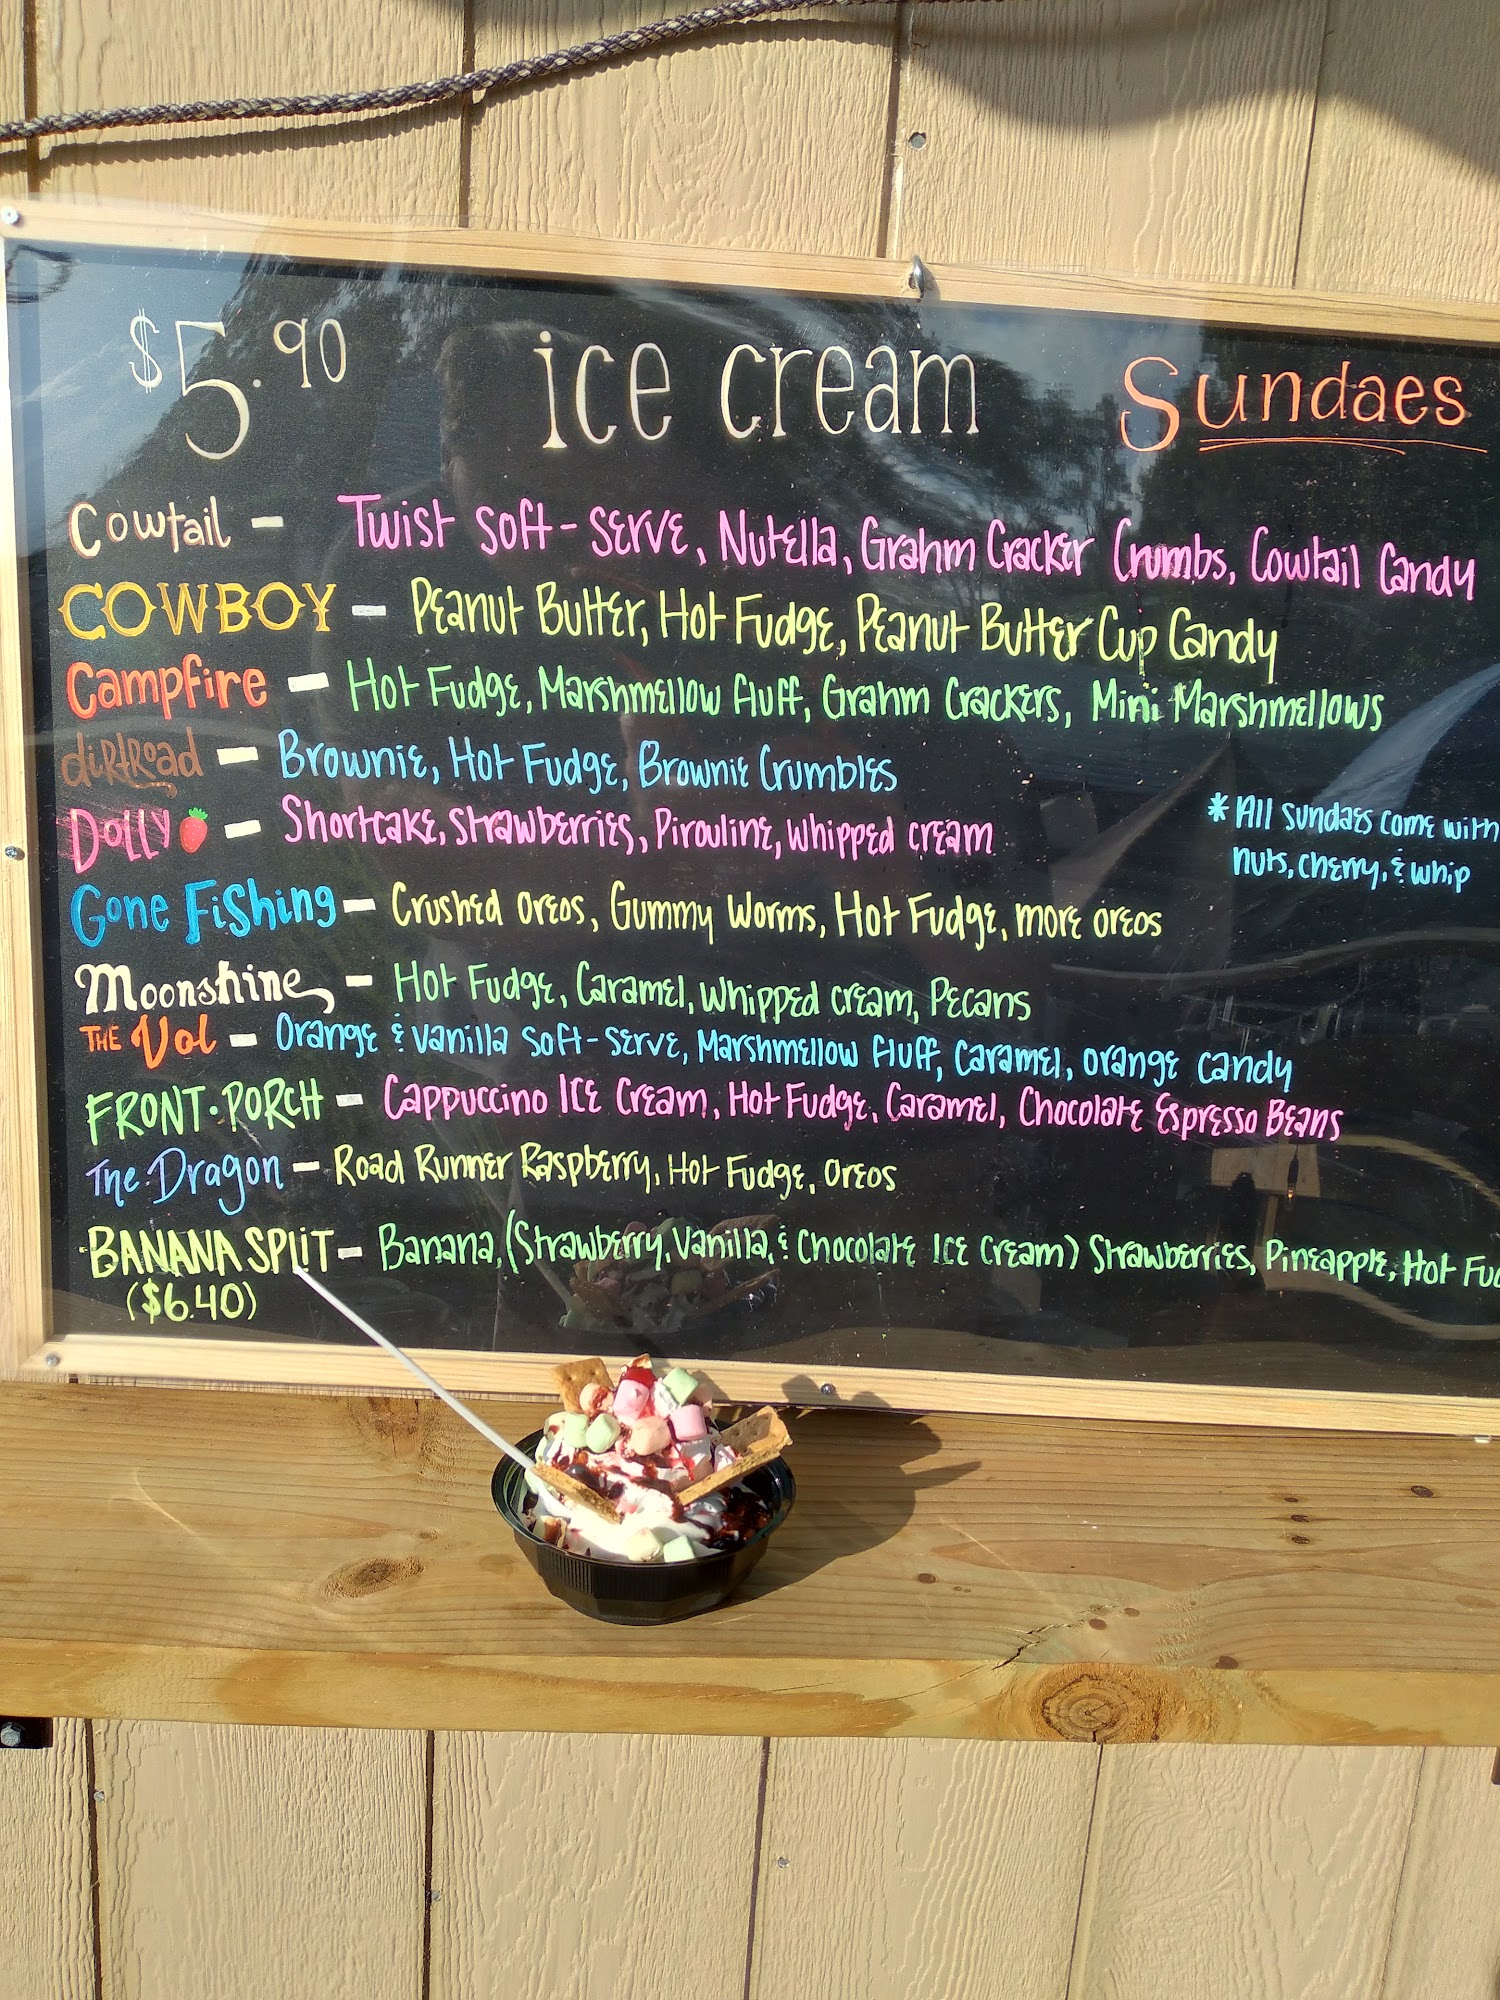 $5.90 ice cream Sundaes
Cowtail - Twist Soft-Serve, Nutella, Grahm Cracker Crumbs, Cowtail Candy
COWBOY - Peanut Butter, Hot Fudge, Peanut Butter Cup Candy
Campfire - Hot Fudge, Marshmellow fluff, Grahm Crackers, Mini Marshmellows
dirtRoad - Brownie, Hot Fudge, Brownie Crumbles
DOLLY - Shortcake, Strawberries, Pirouline, whipped cream
* All sundaes come with
nuts, cherry, & whip
Gone Fishing - Crushed oreos, Gummy Worms, Hot Fudge, more oreos
Moonshine - Hot Fudge, Caramel, whipped cream, Pecans
THE VOL - Orange & Vanilla Soft-Serve, Marshmellow fluff, Caramel, orange candy
FRONT·PORCH - Cappuccino Ice Cream, Hot Fudge, Caramel, Chocolate Espresso Beans
The Dragon - Road Runner Raspberry, Hot Fudge, Oreos
BANANA SPLIT - Banana, (Strawberry, Vanilla, & Chocolate Ice Cream) Strawberries, Pineapple, Hot Fud
($6.40)